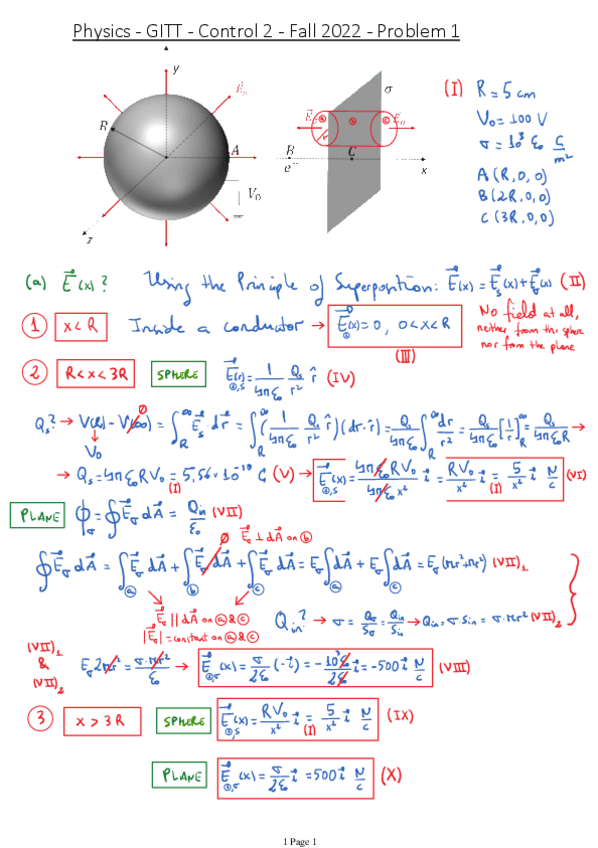 Physics - GITT - Control 2 - Fall 2022 - Problem 1
y
R
A
V₀
z
σ
B
C
e⁻
x
(I) R = 5 cm
V₀ = 100 V
σ = 10³ ε₀ C/m²
A (R, 0, 0)
B (2R, 0, 0)
C (3R, 0, 0)
(a) E⃗(x)? Using the Principle of Superposition: E⃗(x) = E⃗s(x) + E⃗σ(x) (II)
① x < R Inside a conductor → E⃗①(x) = 0, 0 < x < R
(III)
No field at all,
neither from the sphere
nor from the plane
② R < x < 3R SPHERE E⃗(r)②,S = 1/4πε₀ Qs/r² r̂ (IV)
Qs? → V(R) - V(∞) = ∫R^∞ E⃗s dr⃗ = ∫R^∞ (1/4πε₀ Qs/r² r̂)(dr·r̂) = Qs/4πε₀ ∫R^∞ dr/r² = Qs/4πε₀ [1/r]∞^R = Qs/4πε₀R →
0
V₀
→ Qs = 4πε₀RV₀ = 5,56·10⁻¹⁰ C (V) → E⃗②,S(x) = 4πε₀RV₀/4πε₀x² i⃗ = RV₀/x² i⃗ = 5/x² i⃗ N/C (VI)
(I) (I)
PLANE ϕ = ∮E⃗σ dA⃗ = Qin/ε₀ (VII)
0 E⃗σ ⊥ dA⃗ on ⓑ
∮E⃗σ dA⃗ = ∫ⓐ E⃗σ dA⃗ + ∫ⓑ E⃗σ dA⃗ + ∫ⓒ E⃗σ dA⃗ = Eσ∫ⓐ dA⃗ + Eσ∫ⓒ dA⃗ = Eσ(πr² + πr²) (VII)₁
E⃗σ || dA⃗ on ⓐ & ⓒ
|E⃗σ| = constant on ⓐ & ⓒ
Qin? → σ = Qσ/Sσ = Qin/Sin → Qin = σ Sin = σ·πr² (VII)₂
(VII)₁
&
(VII)₂
Eσ 2πr² = σ·πr²/ε₀ → E⃗②,σ(x) = σ/2ε₀ (-i⃗) = - 10³ε₀/2ε₀ i⃗ = -500 i⃗ N/C (VIII)
③ x > 3R SPHERE E⃗③,S(x) = RV₀/x² i⃗ = 5/x² i⃗ N/C (IX)
(I)
PLANE E⃗③,σ(x) = σ/2ε₀ i⃗ = 500 i⃗ N/C (X)
1 Page 1